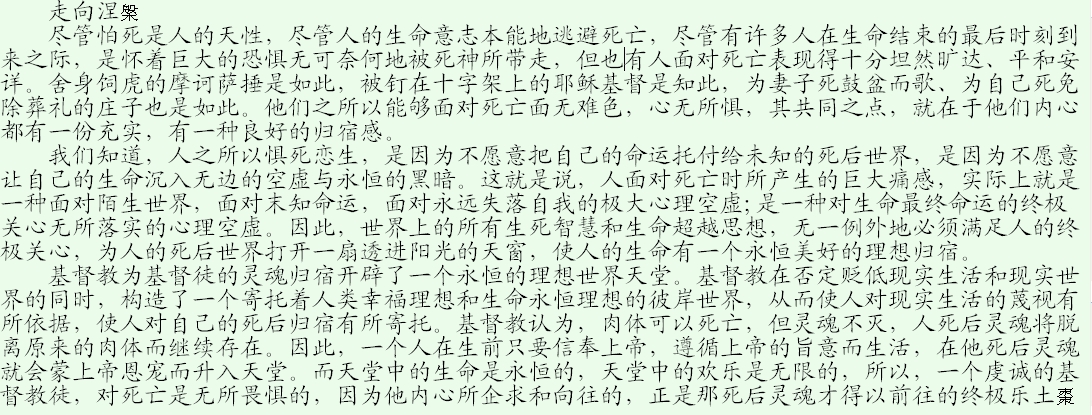 走向涅槃
尽管怕死是人的天性，尽管人的生命意志本能地逃避死亡，尽管有许多人在生命结束的最后时刻到
来之际，是怀着巨大的恐惧无可奈何地被死神所带走，但也有人面对死亡表现得十分坦然旷达、平和安
详。舍身饲虎的摩诃萨捶是如此，被钉在十字架上的耶稣基督是知此，为妻子死鼓盆而歌、为自己死免
除葬礼的庄子也是如此。他们之所以能够面对死亡面无难色，心无所惧，其共同之点，就在于他们内心
都有一份充实，有一种良好的归宿感。
我们知道，人之所以惧死恋生，是因为不愿意把自己的命运托付给未知的死后世界，是因为不愿意
让自己的生命沉入无边的空虚与永恒的黑暗。这就是说，人面对死亡时所产生的巨大痛感，实际上就是
一种面对陌生世界，面对末知命运，面对永远失落自我的极大心理空虚;是一种对生命最终命运的终极
关心无所落实的心理空虚。因此，世界上的所有生死智慧和生命超越思想，无一例外地必须满足人的终
极关心，为人的死后世界打开一扇透进阳光的天窗，使人的生命有一个永恒美好的理想归宿。
基督教为基督徒的灵魂归宿开辟了一个永恒的理想世界天堂。基督教在否定贬低现实生活和现实世
界的同时，构造了一个寄托着人类幸福理想和生命永恒理想的彼岸世界，从而使人对现实生活的蔑视有
所依据，使人对自己的死后归宿有所寄托。基督教认为，肉体可以死亡，但灵魂不灭，人死后灵魂将脱
离原来的肉体而继续存在。因此，一个人在生前只要信奉上帝，遵循上帝的旨意而生活，在他死后灵魂
就会蒙上帝恩宠而升入天堂。而天堂中的生命是永恒的，天堂中的欢乐是无限的，所以，一个虔诚的基
督教徒，对死亡是无所畏惧的，因为他内心所企求和向往的，正是那死后灵魂才得以前往的终极乐土